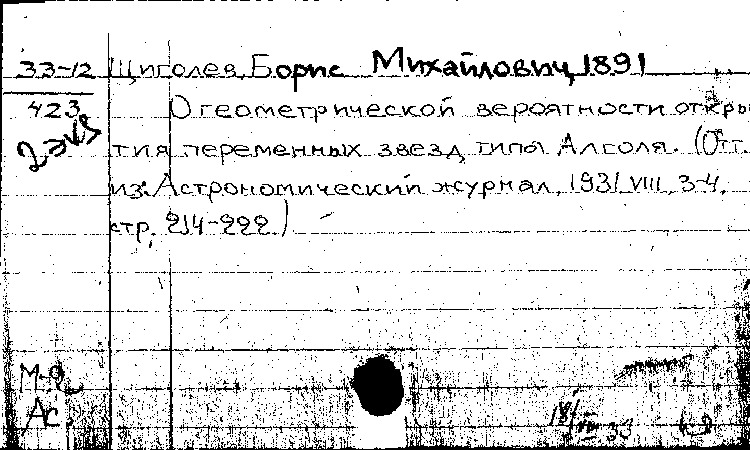 33-12 Щиголев, Борис Михайлович, 1891
423 О геометрической вероятности откры
2 экз тия переменных звезд типа Алголя. (Отт.
из: Астрономический журнал, 1931, VIII, 3-4,
стр. 214-222.)
М-д
Ас
18/VIII 33